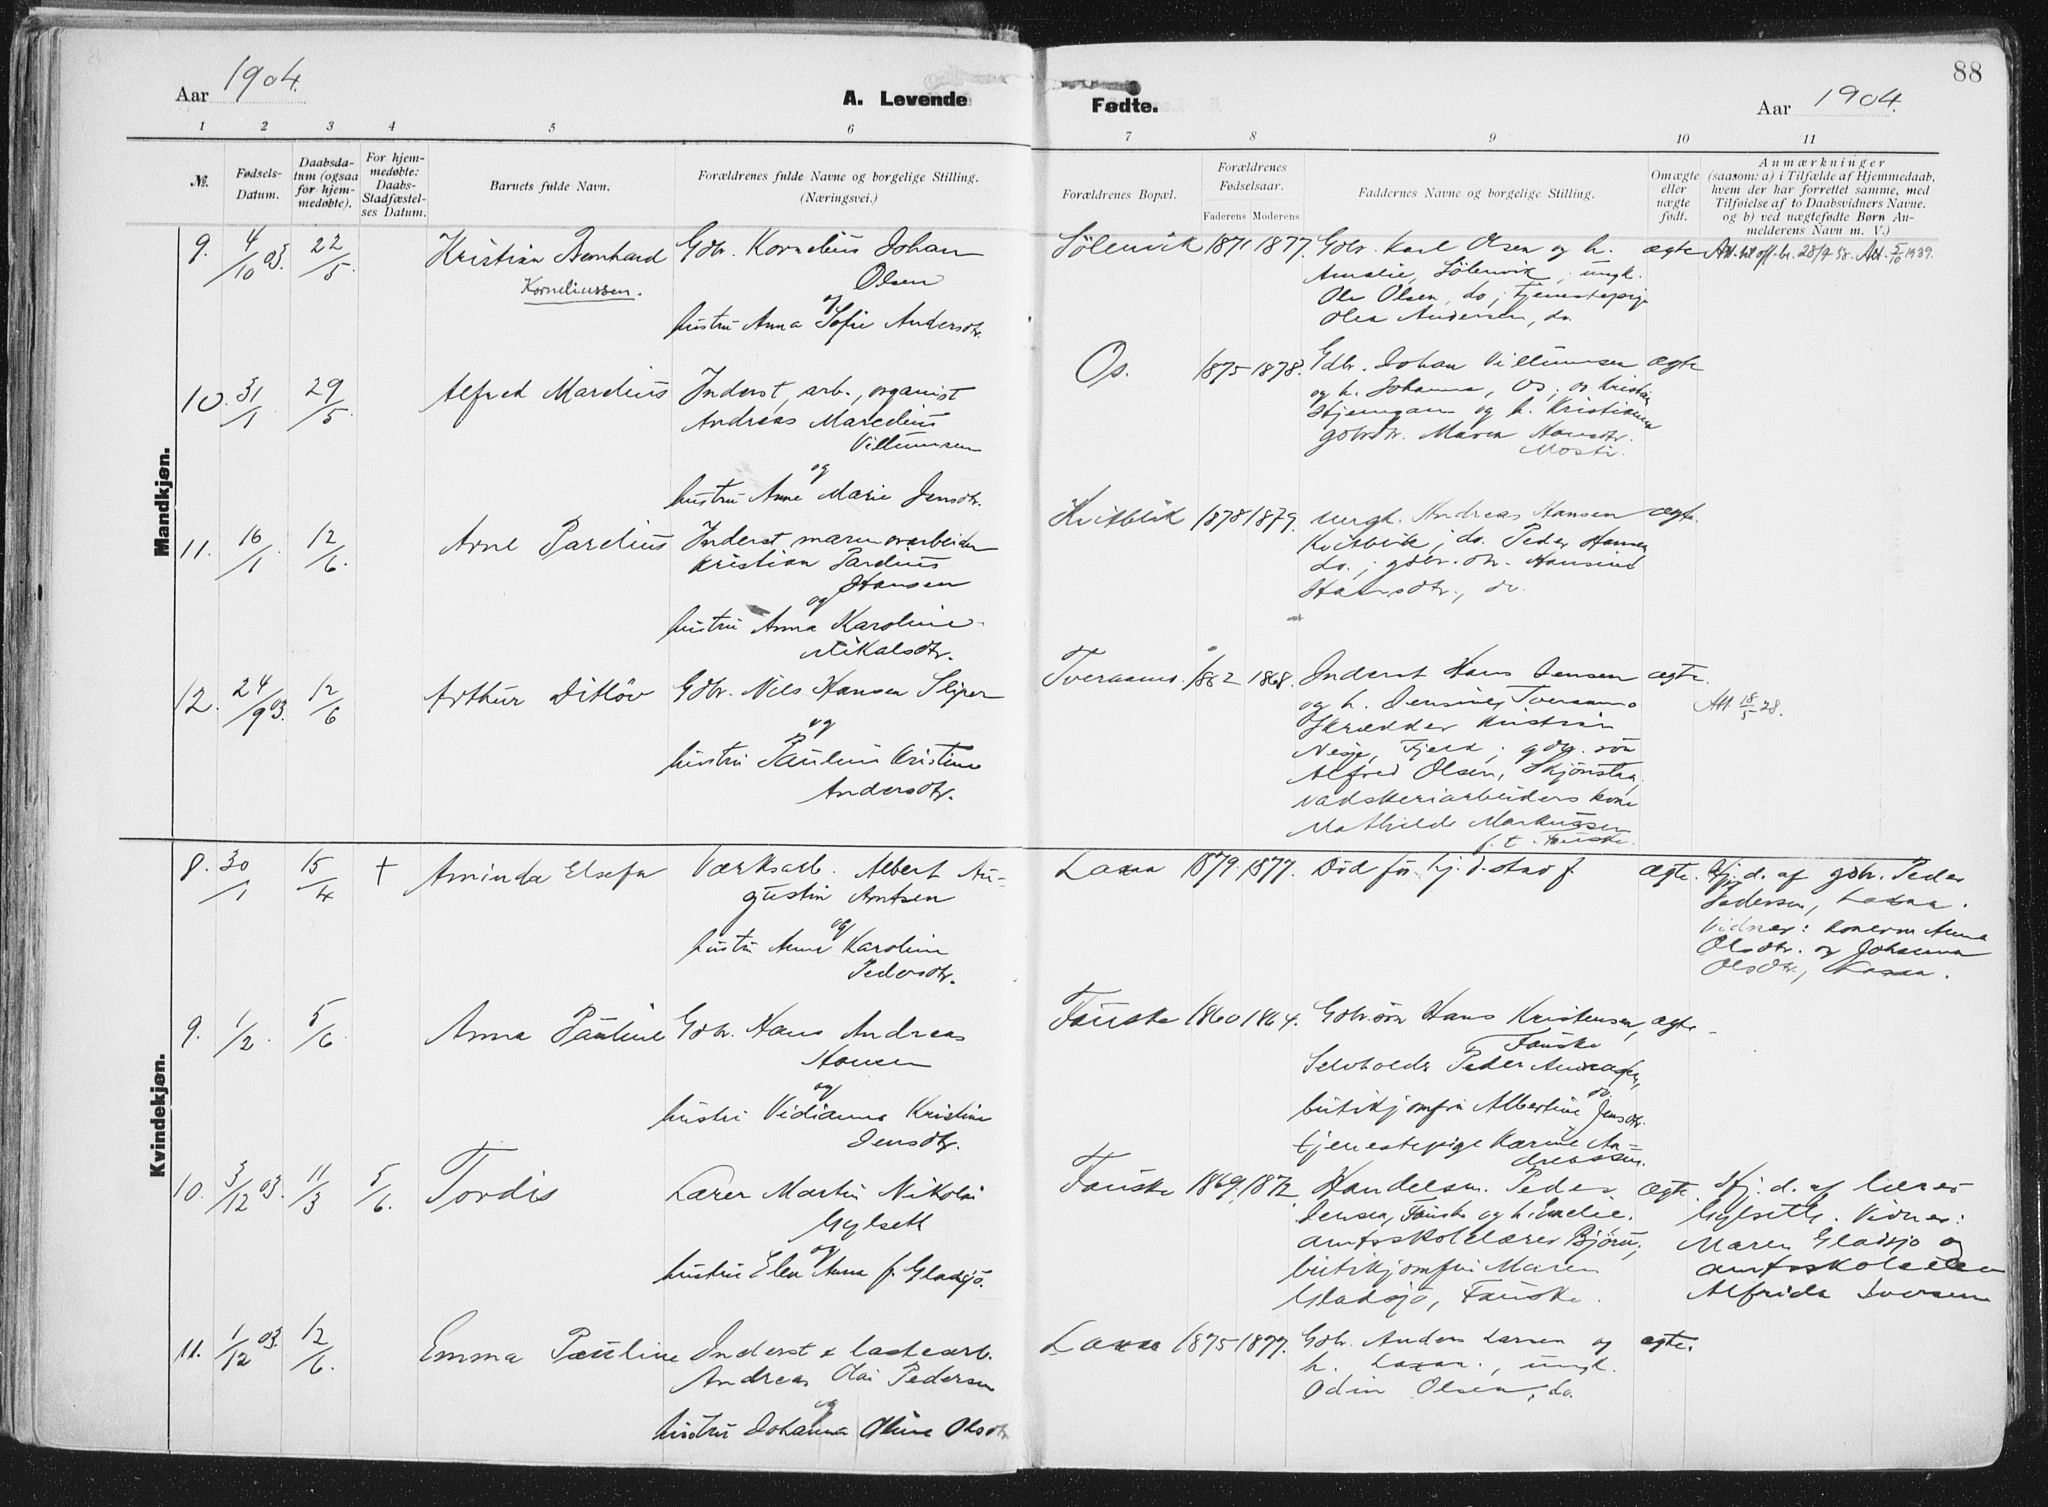 88
Aar 1904.
A. Levende
Fødte.
Aar 1904.
1 2 3 4 5 6 7 8 9 10 11
№.
Fødsels-
Datum.
Daabsda-
tum (ogsaa
for hjem-
medøbte).
For hjem-
medøbte:
Daabs-
Stadfæstel-
ses Datum.
Barnets fulde Navn.
Forældrenes fulde Navne og borgelige Stilling.
(Næringsvei.)
Forældrenes Bopæl.
Forældrenes
Fødselsaar.
Faderens Moderens
Faddernes Navne og borgelige Stilling.
Omægte
eller
uægte
født.
Anmærkninger
(saasom: a) i Tilfælde af Hjemmedaab,
hvem der har forrettet samme, med
Tilføielse af to Daabsvidners Navne.
og b) ved uægtefødte Børn An-
melderens Navn m. V.)
Mandkjøn.
9. 4/10 03. 22/5 Kristian Bernhard
Korneliussen.
Gdbr. Kornelius Johan
Olsen
og
hustru Anna Sofie Andersdtr.
Sølenvik 1871 1877.
Gdbr. Karl Olsen og h.
Amalie, Sølenvik, ungk.
Ole Olsen, do; tjenestepige
Olea Andersen, do.
ægte
Att. til off. br. 28/7 38. Att. 5/10 1939.
10. 31/1 29/5 Alfred Marelius
Inderst, arb., organist
Andreas Marelius
Villumsen
og
hustru Anne Marie Jensdtr.
Os. 1875 1878.
Gdbr. Johan Villumsen
og h. Johanna, Os; og Kristian
Stjerngam og h. Kristianna
gdbrdr. Maren Hansdtr.
Mosti.
ægte
11. 16/1 12/6 Arne Parelius
Inderst, marmorarbeider
Kristian Parelius
Hansen
og
hustru Anna Karoline
Nikalsdtr.
Kvitblik 1878 1879.
ungk. Andreas Hansen
Kvitblik; do. Peder Hansen
do.; gdbr.dtr. Hansine
Hansdtr., do.
ægte.
12. 24/9 03. 12/6 Arthur Ditløv
Gdbr. Nils Hansen
og
hustru Pauline Kristine
Andersdtr.
Tveraamo. 1862 1868.
Inderst Hans Jensen
og h. Jensine, Tveraamo
Skrædder Kristian
Nesje, Fjeld; gdbr. søn
Alfred Olsen, Skjønstaa,
vadskeriarbeiders kone
Mathilde Markussen
f. t. Fauske.
ægte.
Att. 18/5 28.
Kvindekjøn.
8. 30/1 15/4 † Aminda Elsefa
Værksarb. Albert Au-
gustin Arntsen
og
hustru Anne Karoline
Pedersdtr.
Laxaa 1879. 1877.
Død før hj.d. stadf.
ægte.
Hj. d. af gdbr. Peder
Pedersen, Laxaa.
Vidner: konerne Anna
Olsdtr. og Johanna
Olsdtr., Laxaa.
9. 1/2 5/6 Anna Pauline
Gdbr. Hans Andreas
Hansen
og
hustru Vidianna Kristine
Jensdtr.
Fauske 1860 1864.
Gdbr.søn Hans Kristensen,
Fauske
Selvholder Peder Andreassen,
do.
butikjomfru Albertine Jensdtr.
tjenestepige Karine An-
dreassen.
ægte
10. 3/12 03. 11/3 5/6. Tordis
Lærer Martin Nikolai
Gylseth
og
hustru Elen Anna f. Gladsjø.
Fauske 1869. 1872
Handelsm. Peder
Jensen, Fauske og h. Emelie.
amtsskolelærer Bjørn,
butikjomfru Maren
Gladsjø, Fauske.
ægte.
Hj. d. af lærer
Gylseth. Vidner:
Maren Gladsjø og
Alfrida Iversen
11. 1/12 03. 12/6. Emma Pauline
Inderst & lastearb.
Andreas Olai Pedersen
og
hustru Johanna Oline Olsdtr.
Laxaa 1875 1877.
Gdbr. Anders Larsen og
h. Laxaa., ungk.
Odin Olsen, do.
ægte.